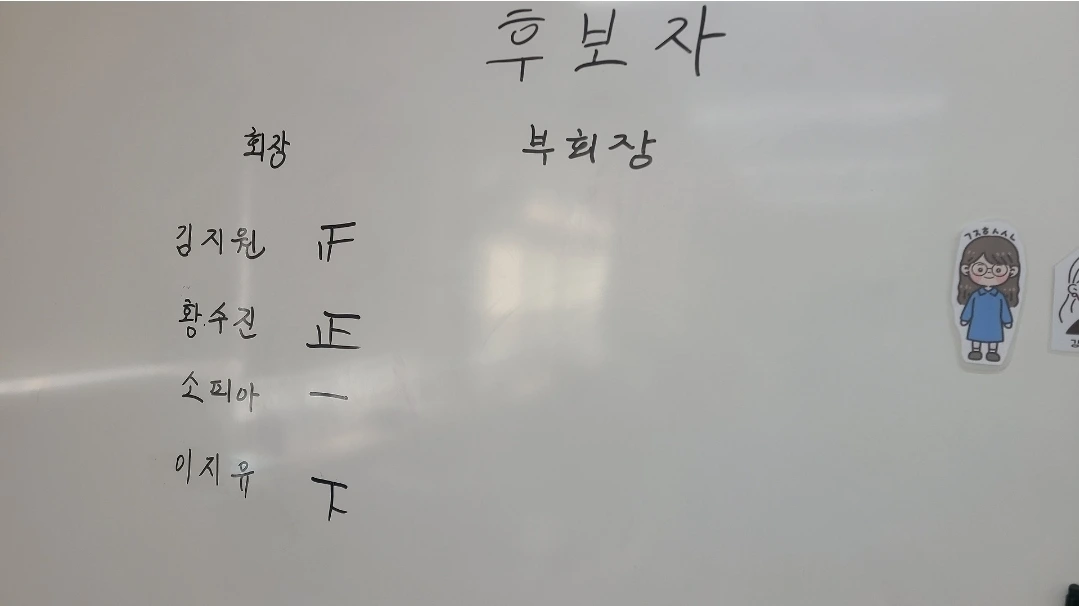 후보자
회장 부회장
김지원 正
황수진 正
소피아 一
이지유 下